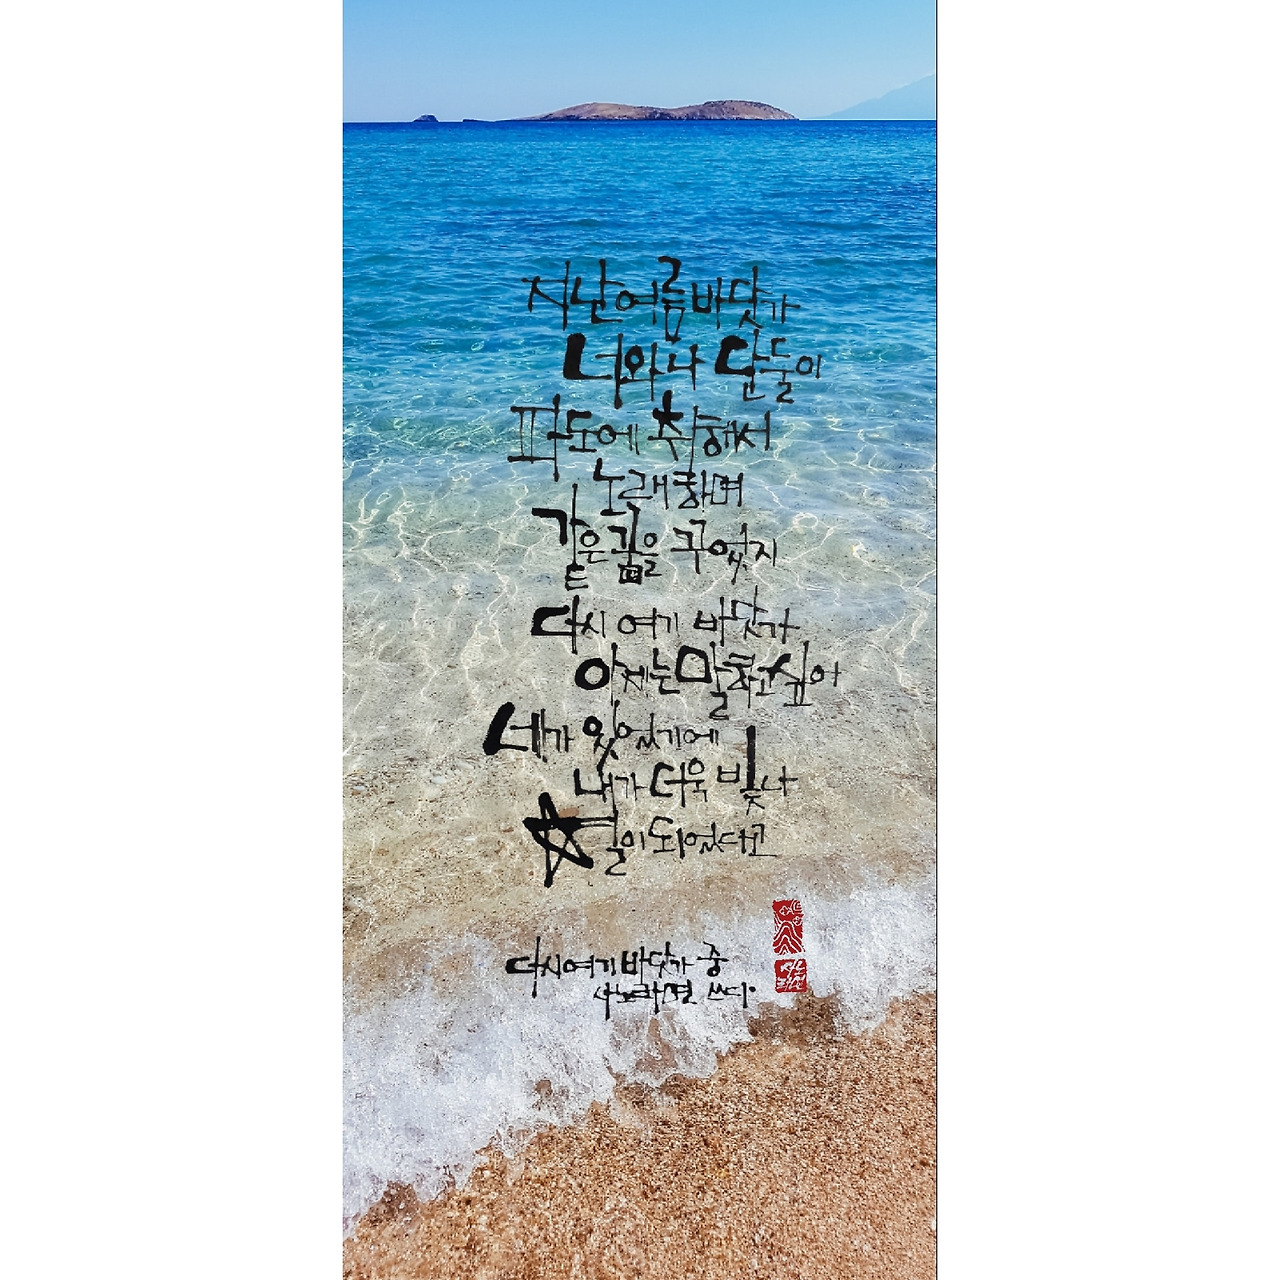 지난여름 바닷가
너와 나 단둘이
파도에 취해서
노래하며
같은 꿈을 꾸었지
다시 여기 바닷가
이제는 말하고 싶어
네가 있었기에
내가 더욱 빛나
별이 되었다고
다시 여기 바닷가 중
사노라면 쓰다.